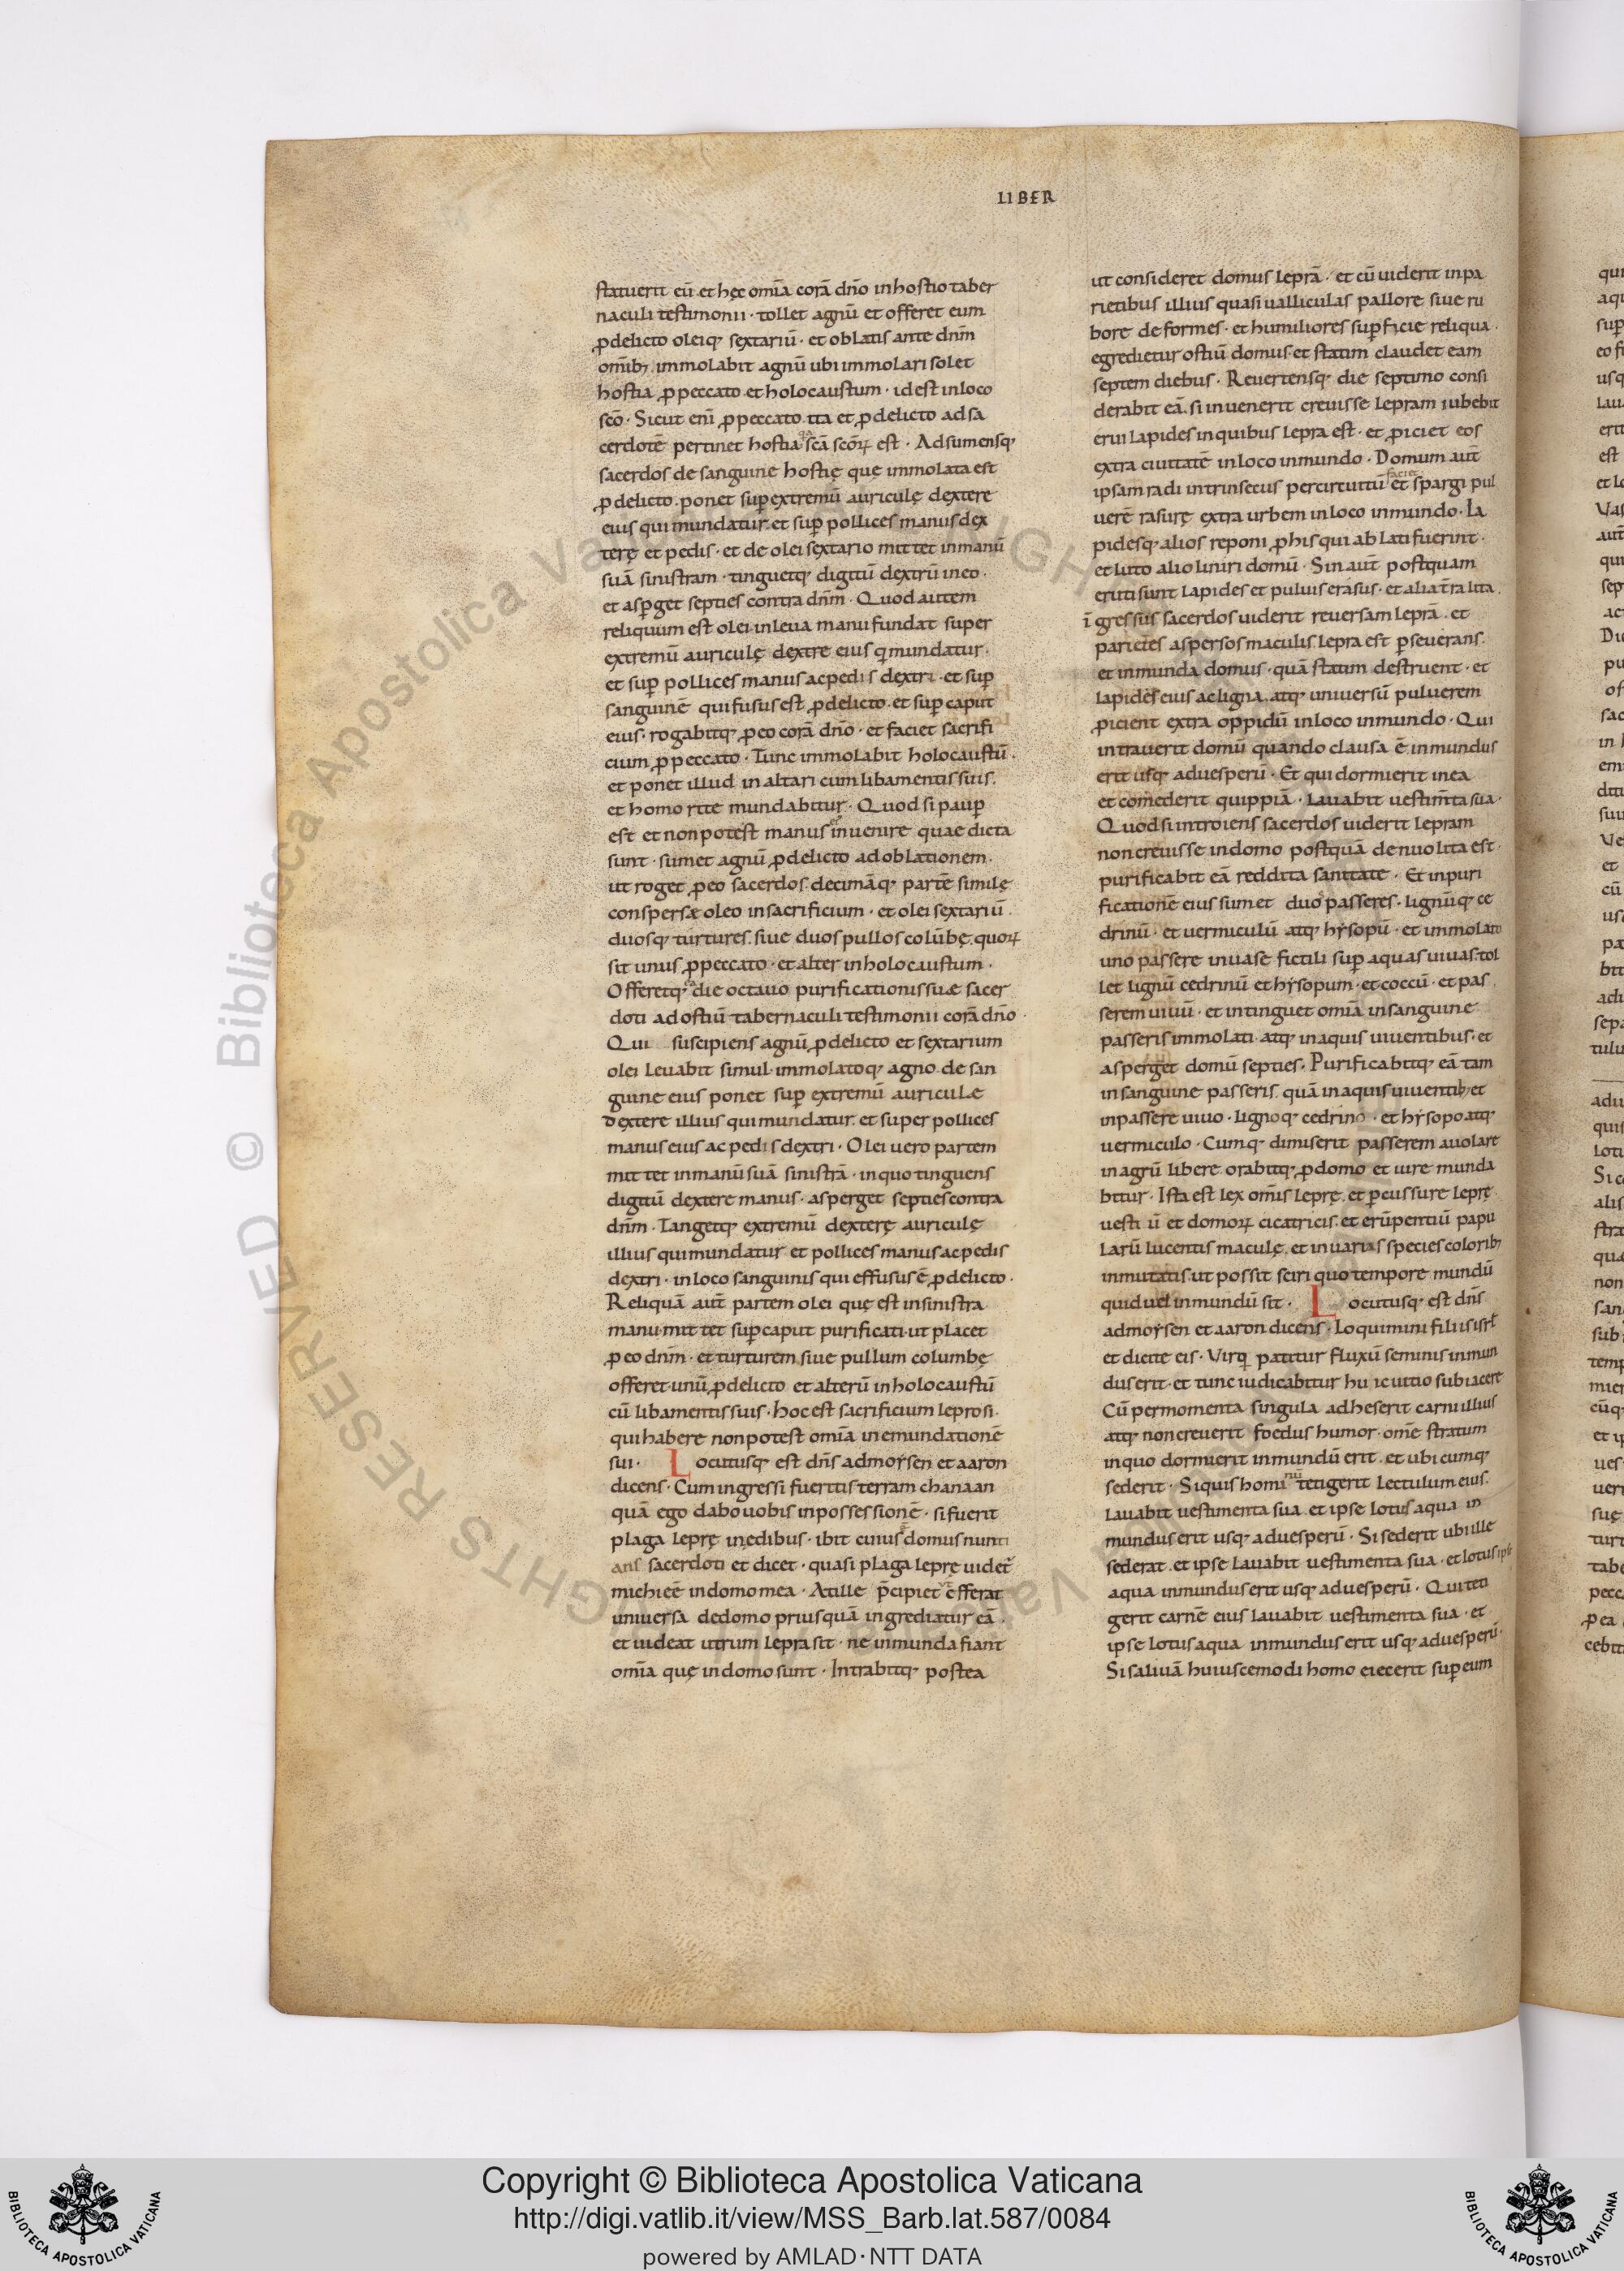 LIBER
statuerit eū et hęc om̄ia corā dn̄o in hostio taber
naculi testimonii · tollet agnū et offeret eum
ꝓ delicto oleiq; sextariū · et oblatis ante dnm̄
om̄ib; immolabit agnū ubi immolari solet
hostia ꝓ peccato et holocaustum · id est in loco
sc̄o · Sicut eni ꝓ peccato ita et ꝓ delicto ad sa
cerdotē pertinet hostia sc̄a sc̄oꝝ est · Adsumensq;
sacerdos de sanguine hostię quę immolata est
ꝓ delicto ponet sup̄ extremū auriculę dextere
eius qui mundatur et sup̄ pollices manus dex
terę et pedis · et de olei sextario mittet in manū
suā sinistram · tinguetq; digitū dextrū in eo ·
et asp̄get septies contra dnm̄ · Quod autem
reliquum est olei in leua manu fundat super
extremū auriculę dextre eius q̇ mundatur ·
et sup̄ pollices manus ac pedis dextri · et sup̄
sanguinē qui fusus est ꝓ delicto et sup̄ caput
eius · rogabitq; ꝓ eo corā dn̄o · et faciet sacrifi
cium ꝓ peccato · Tunc immolabit holocaustū ·
et ponet illud in altari cum libamentis suis ·
et homo rite mundabitur · Quod si paup̄
est et non potest manus inuenire quae dicta
sunt · sumet agnū ꝓ delicto ad oblationem ·
ut roget ꝓ eo sacerdos decimāq; partē similę
conspersæ oleo in sacrificium · et olei sextariū ·
duosq; turtures siue duos pullos colūbę quoꝝ
sit unus ꝓ peccato · et alter in holocaustum ·
Offeretq; die octauo purificationis suæ sacer
doti ad ostiū tabernaculi testimonii corā dn̄o ·
Qui suscipiens agnū ꝓ delicto et sextarium
olei leuabit simul immolatoq; agno de san
guine eius ponet sup̄ extremū auriculę
dextere illius qui mundatur et super pollices
manus eius ac pedis dextri · Olei uero partem
mittet in manū suā sinistrā · in quo tinguens
digitū dextere manus · asperget septies contra
dnm̄ · Tangetq; extremū dexterę auriculę
illius qui mundatur et pollices manus ac pedis
dextri · in loco sanguinis qui effusus ē ꝓ delicto ·
Reliquā aut̄ partem olei quę est in sinistra
manu mittet sup̄ caput purificati ut placet
ꝓ eo dnm̄ · et turturem siue pullum columbę
offeret unū ꝓ delicto et alterū in holocaustū
cū libamentis suis · hoc est sacrificium leprosi ·
qui habere non potest om̄ia in emundationē
sui · Locutusq; est dn̄s ad moẏsen et aaron
dicens · Cum ingressi fueritis terram chanaan
quā ego dabo uobis in possessionē · si fuerit
plaga leprę in edibus · ibit cuius ē domus nunti
ans sacerdoti et dicet · quasi plaga leprę uidet̄
michi eē in domo mea · At ille p̄cipiet efferat
uniuersa de domo priusquā ingrediatur eā ·
et uideat utrum lepra sit · ne inmunda fiant
om̄ia quę in domo sunt · Intrabitq; postea
ut consideret domus leprā · et cū uiderit in pa
rietibus illius quasi ualliculas pallore siue ru
bore deformes · et humiliores sup̄ficie reliqua ·
egredietur ostiū domus et statim claudet eam
septem diebus · Reuertensq; die septimo consi
derabit eā si inuenerit creuisse lepram iubebit
erui lapides in quibus lepra est · et ꝓiciet eos
extra ciuitatē in loco inmundo · Domum aut̄
faciet
ipsam radi intrinsecus per circuitū et spargi pul
uerē rasurę extra urbem in loco inmundo · La
pidesq; alios reponi ꝓ his qui ablati fuerint ·
et luto alio liniri domū · Sin aut̄ postquam
eruti sunt lapides et puluis erasus · et alia t̄ra lita
īgressus sacerdos uiderit reuersam leprā · et
parietes aspersos maculis lepra est p̄seuerans
et inmunda domus · quā statim destruent · et
lapides eius ac ligna atq; uniuersū puluerem
ꝓicient extra oppidū in loco inmundo · Qui
intrauerit domū quando clausa ē inmundus
erit usq; ad uesperū · Et qui dormierit in ea
et comederit quippiā · lauabit uestim̄ta sua ·
Quod si introiens sacerdos uiderit lepram
non creuisse in domo postquā denuo lita est ·
purificabit eā reddita sanitate · Et in puri
ficationē eius sumet duo passeres · lignūq; ce
drinū · et uermiculū atq; hẏsopū · et immolato
uno passere in uase fictili sup̄ aquas uiuas tol
let lignū cedrinū et hẏsopum · et coccū · et pas
serem uiuū · et intinguet om̄ia in sanguine
passeris immolati atq; in aquis uiuentibus · et
asperget domū septies · Purificabitq; eā tam
in sanguine passeris quā in aquis uiuentib; et
in passere uiuo · lignoq; cedrino · et hẏsopo atq;
uermiculo · Cumq; dimiserit passerem auolare
in agrū libere orabitq; ꝓ domo et iure munda
bitur · Ista est lex om̄is leprę et p̄cussure leprę
uestiū et domoꝝ cicatricis et erūpentiū papu
larū lucentis maculę et in uarias species colorib;
inmutatis ut possit sciri quo tempore mundū
quid uel inmundū sit · Locutusq; est dn̄s
ad moẏsen et aaron dicens · Loquimini filiis isrl̄
et dicite eis · Vir q̇ patitur fluxū seminis inmun
dus erit · et tunc iudicabitur huic uitio subiacere
Cū per momenta singula adheserit carni illius
atq; non creuerit foedus humor · om̄e stratum
in quo dormierit inmundū erit et ubicumq;
sederit · Si quis hominū tetigerit lectulum eius
lauabit uestimenta sua et ipse lotus aqua in
mundus erit usq; ad uesperū · Si sederit ubi ille
sederat et ipse lauabit uestimenta sua · et lotus ipse
aqua inmundus erit usq; ad uesperū · Qui teti
gerit carnē eius lauabit uestimenta sua · et
ipse lotus aqua inmundus erit usq; ad uesperū ·
Si saliuā huiuscemodi homo eiecerit sup̄ eum
© Biblioteca Apostolica Vaticana ALL RIGHTS RESERVED
Copyright © Biblioteca Apostolica Vaticana
http://digi.vatlib.it/view/MSS_Barb.lat.587/0084
powered by AMLAD·NTT DATA
BIBLIOTECA APOSTOLICA VATICANA
BIBLIOTECA APOSTOLICA VATICANA